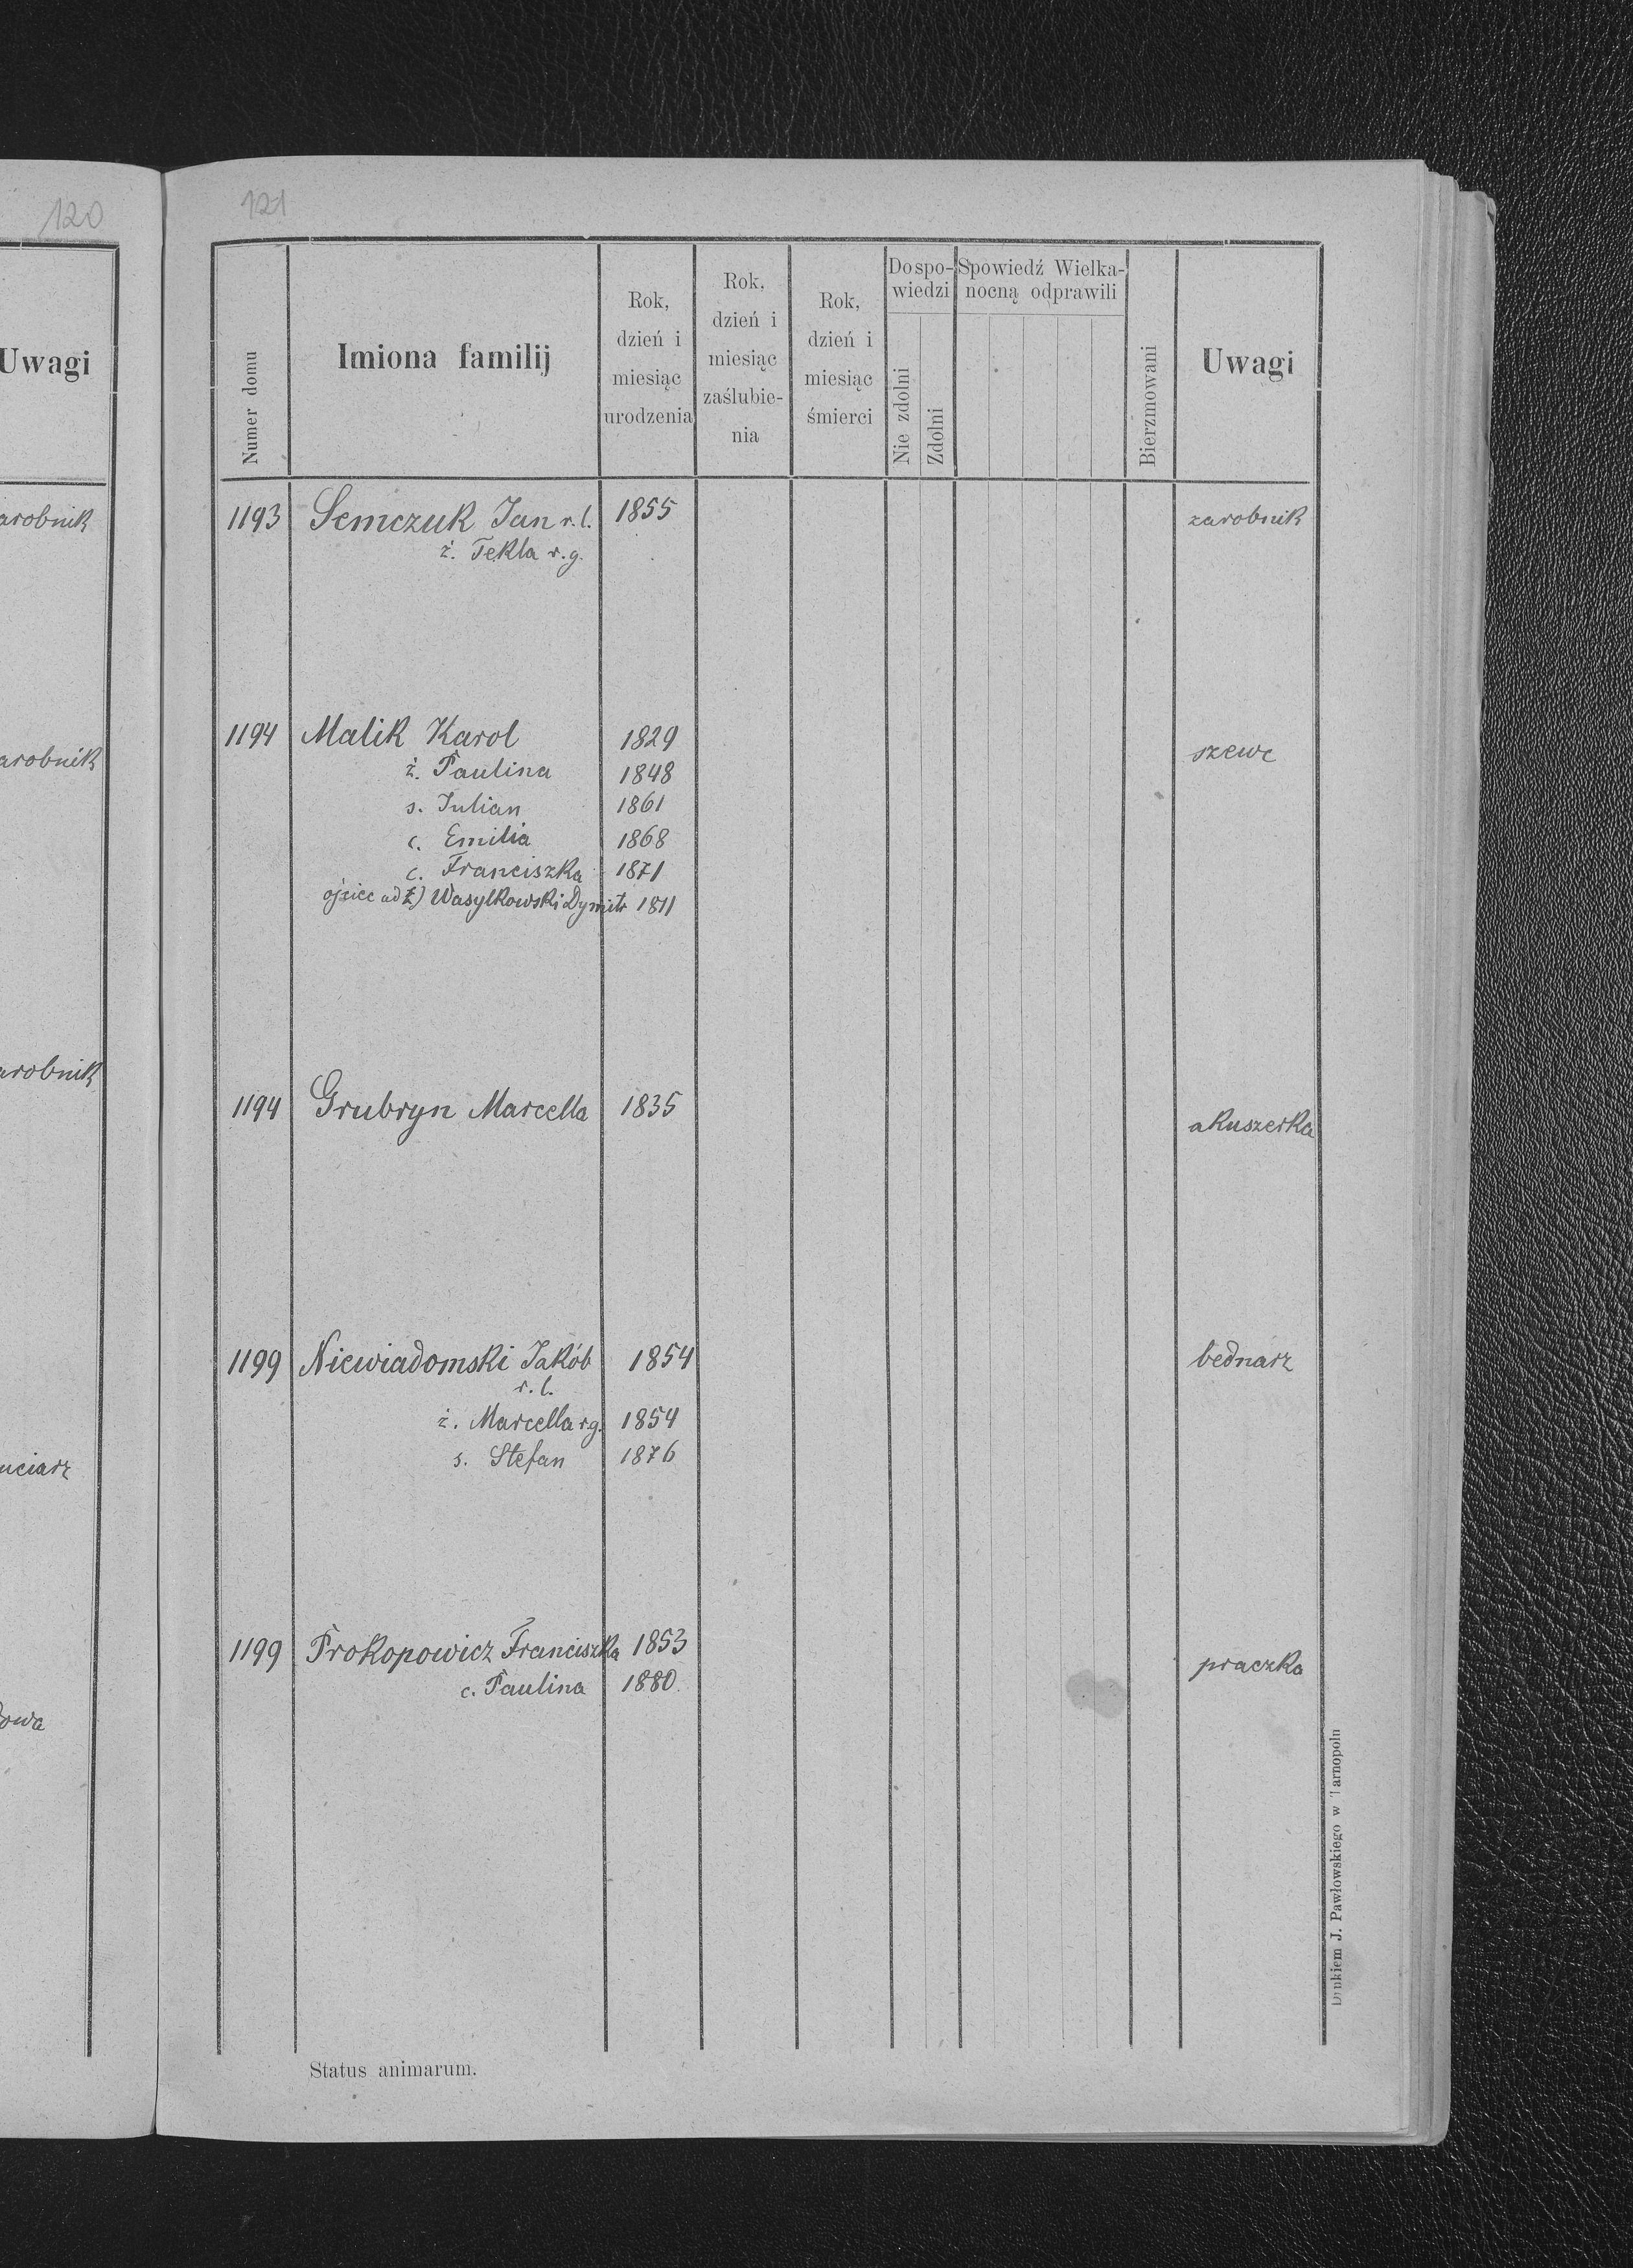 120
Uwagi
arobnik
arobnik
arobnik
uciarz
dowa
121
Numer domu
Imiona familij
Rok,
dzień i
miesiąc
urodzenia
Rok,
dzień i
miesiąc
zaślubie-
nia
Rok,
dzień i
miesiąc
śmierci
Do spo-
wiedzi
Nie zdolni
Zdolni
Spowiedź Wielka-
nocną odprawili
Bierzmowani
Uwagi
1193 Semczuk Jan r. l. 1855 zarobnik
ż. Tekla r. g.
1194 Malik Karol 1829 szewc
ż. Paulina 1848
s. Julian 1861
c. Emilia 1868
c. Franciszka 1871
ojciec ad ż) Wasylkowski Dymitr 1811
1194 Grubryn Marcella 1835 akuszerka
1199 Niewiadomski Jakób 1854 bednarz
r. l.
ż. Marcella r g. 1854
s. Stefan 1876
1199 Prokopowicz Franciszka 1853 praczka
c. Paulina 1880.
Status animarum.
Drukiem J. Pawłowskiego w Tarnopolu